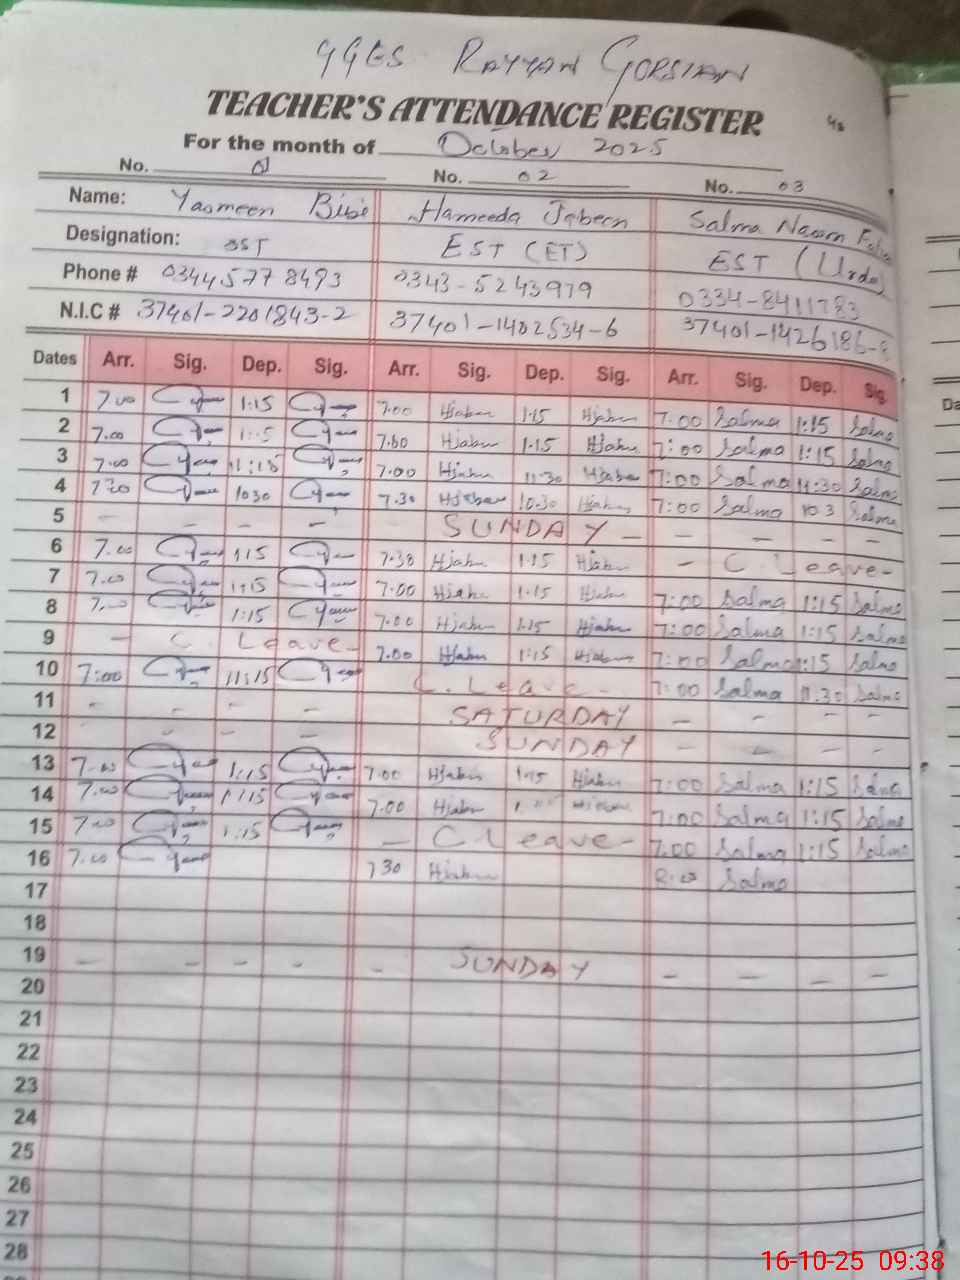 GGES RAYYAN GORSIAN
TEACHER'S ATTENDANCE REGISTER
For the month of October 2025
No. 01 No. 02 No. 03
Name: Yasmeen Bibi Hameeda Jabeen Salma Naram
Designation: SST EST (ET) EST (Urdu)
Phone # 0344 577 8493 0343-5243979 0334-8411783
N.I.C # 37401-2201843-2 37401-1402534-6 37401-1426186-8
Dates Arr. Sig. Dep. Sig. Arr. Sig. Dep. Sig. Arr. Sig. Dep. Sig
1 7.00 1:15 7.00 Hjaben 1.15 Hjaben 7:00 Salma 1:15 Salma
2 7.00 1:15 7.00 Hjaben 1.15 Hjaben 7:00 Salma 1:15 Salma
3 7.00 11:15 7.00 Hjaben 11.30 Hjaben 7:00 Salma 11:30 Salma
4 7.00 1030 7.30 Hjaben 10.30 Hjaben 7:00 Salma 10 3 Salma
5 - - - - SUNDAY - - - - -
6 7.00 1:15 7.30 Hjaben 1.15 Hjaben - C. Leave -
7 7.00 1:15 7.00 Hjaben 1.15 Hjaben 7:00 Salma 1:15 Salma
8 7.00 1:15 7.00 Hjaben 1.15 Hjaben 7:00 Salma 1:15 Salma
9 - C. Leave - 7.00 Hjaben 1:15 Hjaben 7:00 Salma 1:15 Salma
10 7:00 11:15 C. Leave - 7:00 Salma 11.30 Salma
11 - - - - SATURDAY - - - -
12 - - - - SUNDAY - - - -
13 7.00 1:15 7.00 Hjaben 1.15 Hjaben 7:00 Salma 1:15 Salma
14 7.00 1:15 7.00 Hjaben Hjaben 7:00 Salma 1:15 Salma
15 7.00 1:15 - C. Leave - 7.00 Salma 1:15 Salma
16 7.00 7 30 Hjaben 8:00 Salma
17
18
19 - - - - - SUNDAY - - - -
20
21
22
23
24
25
26
27
28
Da
16-10-25 09:38